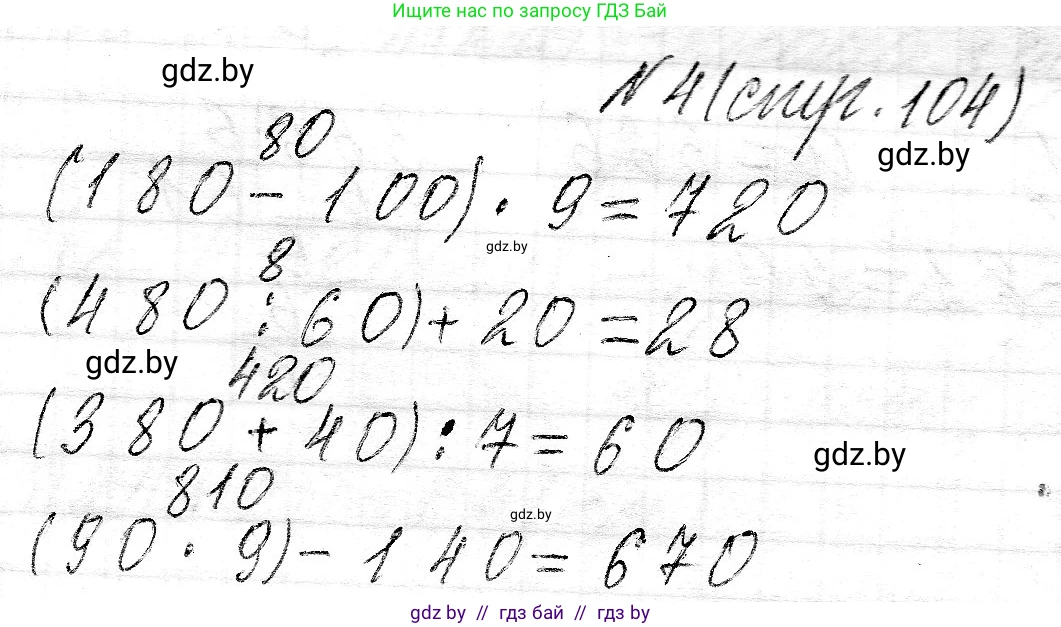 Ищите нас по запросу ГДЗ Бай
gdz.by
N 4 (стр. 104)
gdz.by
80
(180 - 100) · 9 = 720
gdz.by
8
(480 : 60) + 20 = 28
gdz.by
420
(380 + 40) : 7 = 60
gdz.by
810
gdz.by
(90 · 9) - 140 = 670
gdz by // гдз бай // гдз by